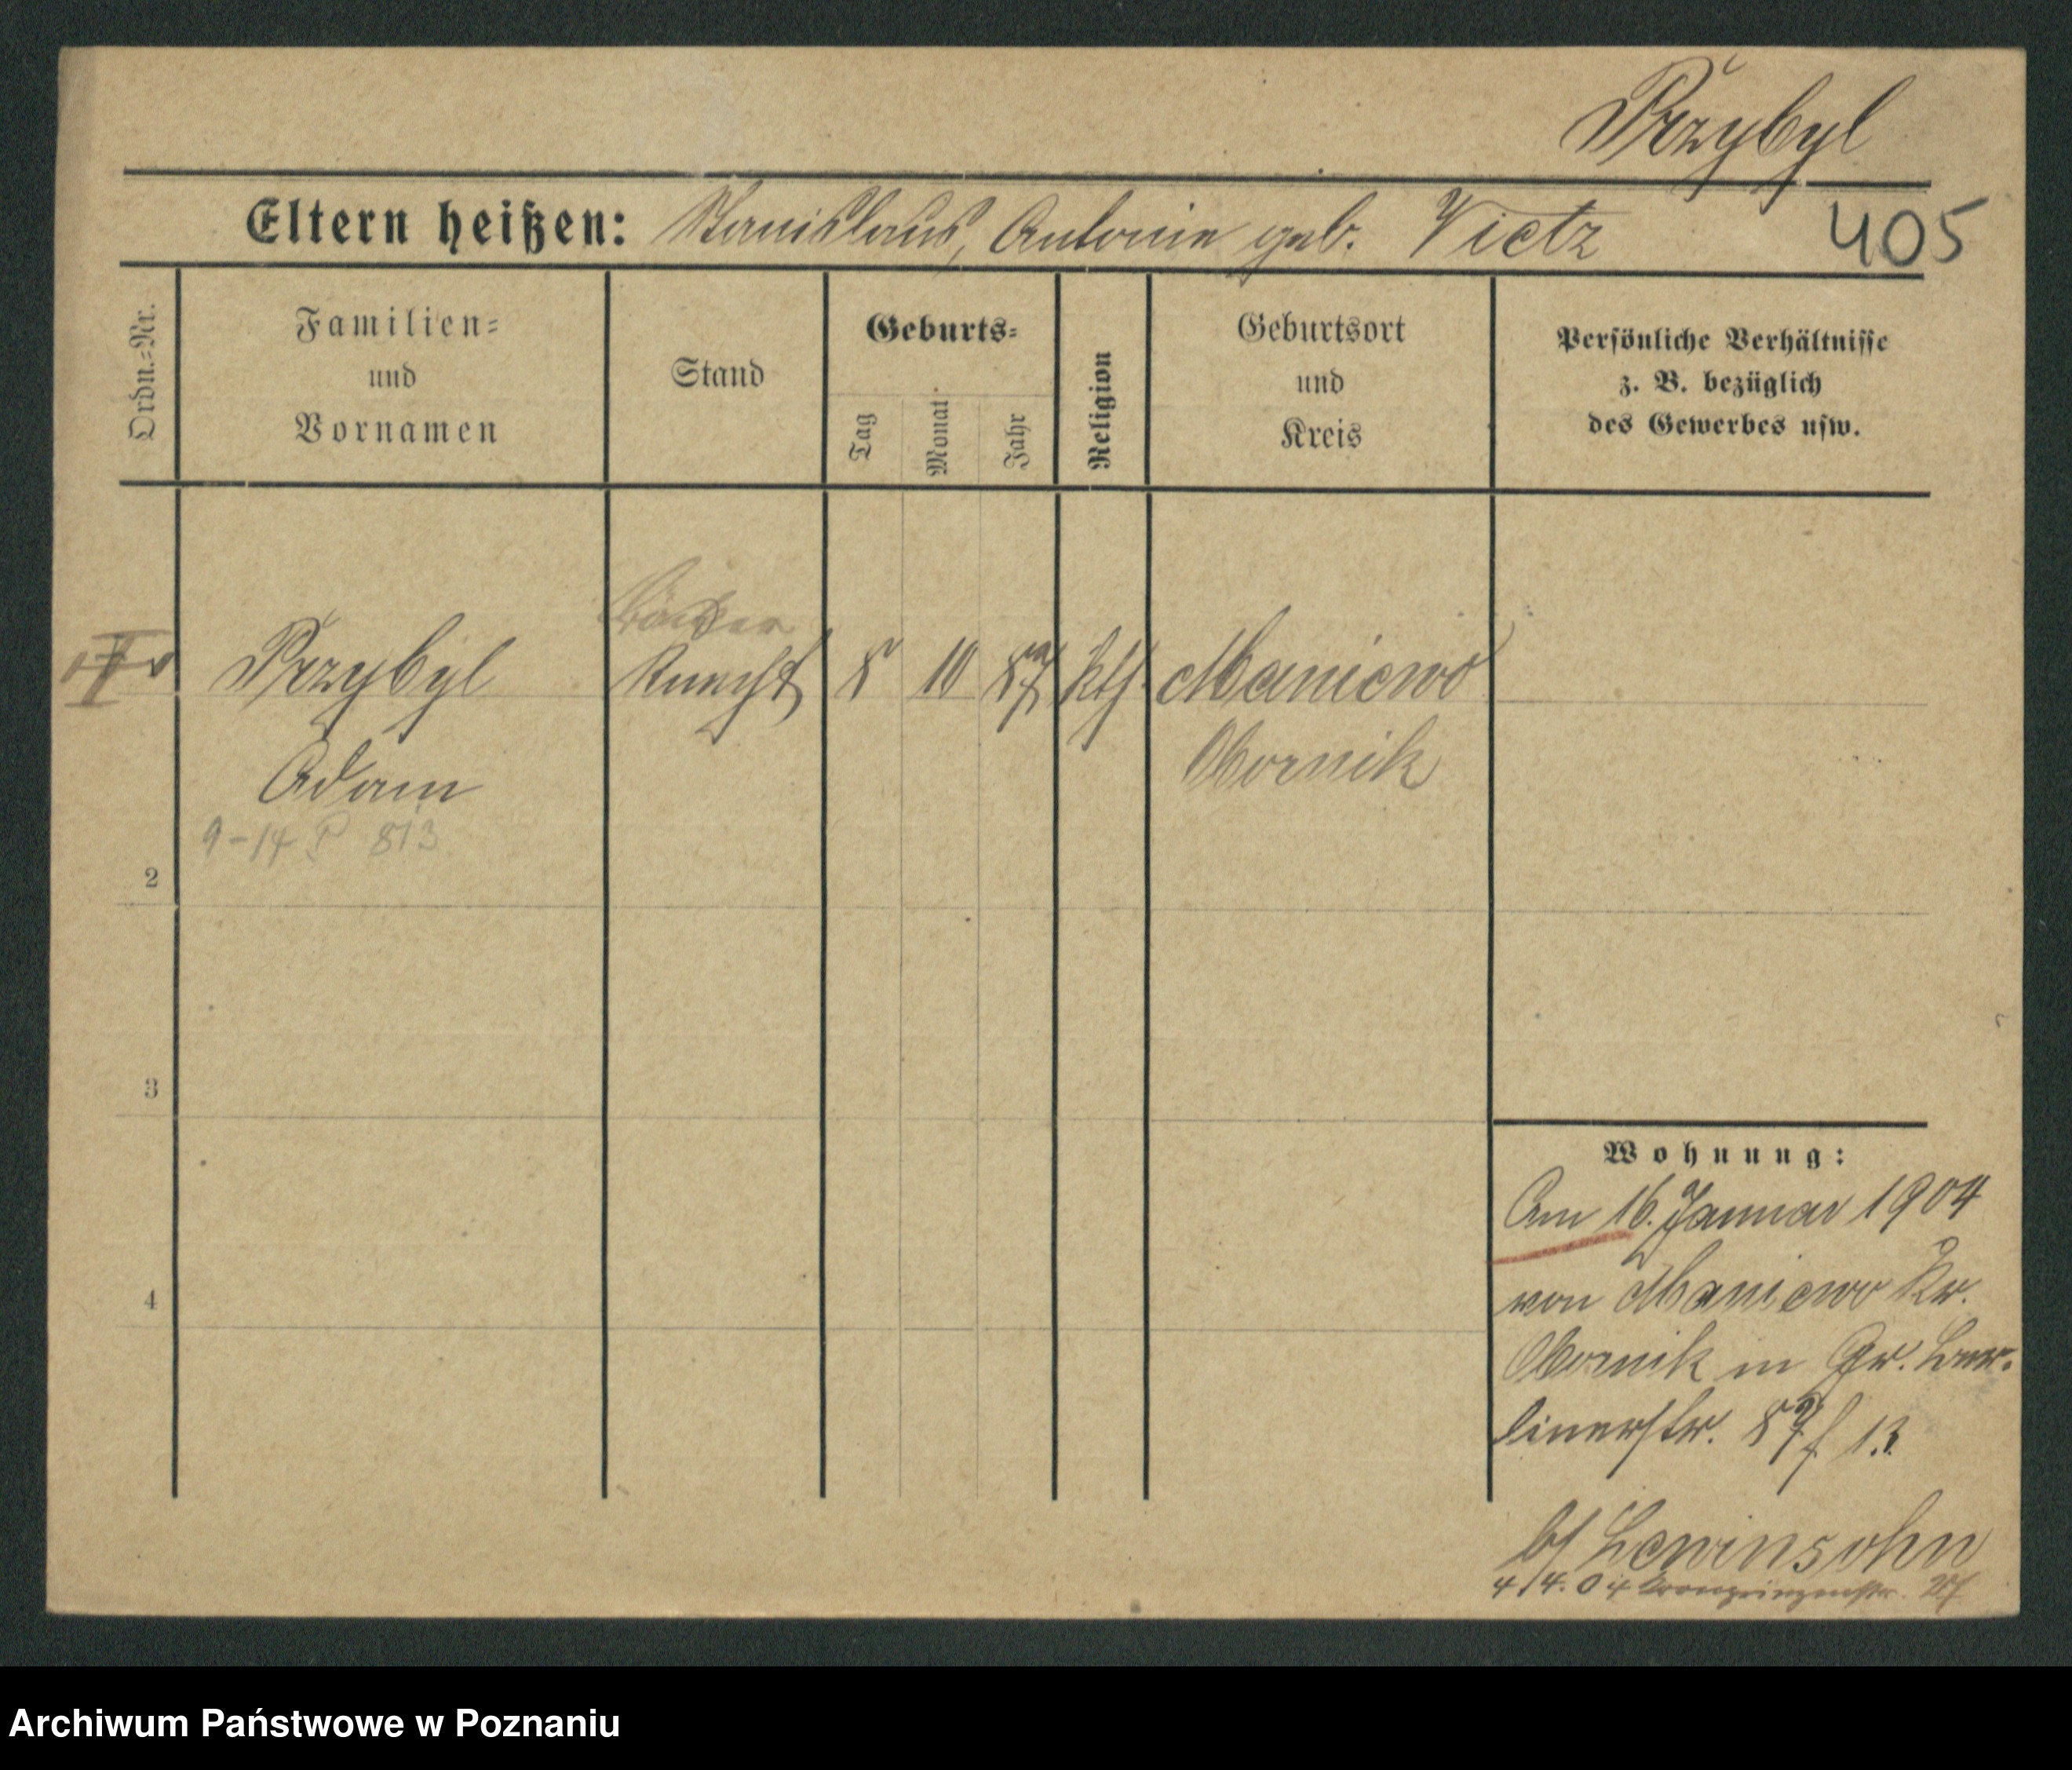 Przybyl
Eltern heißen: Stanislaus, Antonie geb. Vietz
405
Ordn.-Nr.
Familien-
und
Vornamen
Stand
Geburts-
Tag
Monat
Jahr
Religion
Geburtsort
und
Kreis
Persönliche Verhältnisse
z. B. bezüglich
des Gewerbes usw.
Przybyl
Knecht
8
10
87
kth.
Maniewo
Adam
Obornik
9-14 P 813
2
3
4
Wohnung:
Am 16. Januar 1904
von Maniewo Kr.
Obornik in Gr. Ber-
linerstr. 87/ 13.
b/ Lewinsohn
4/4. 04 Kronprinzenstr.
Archiwum Państwowe w Poznaniu